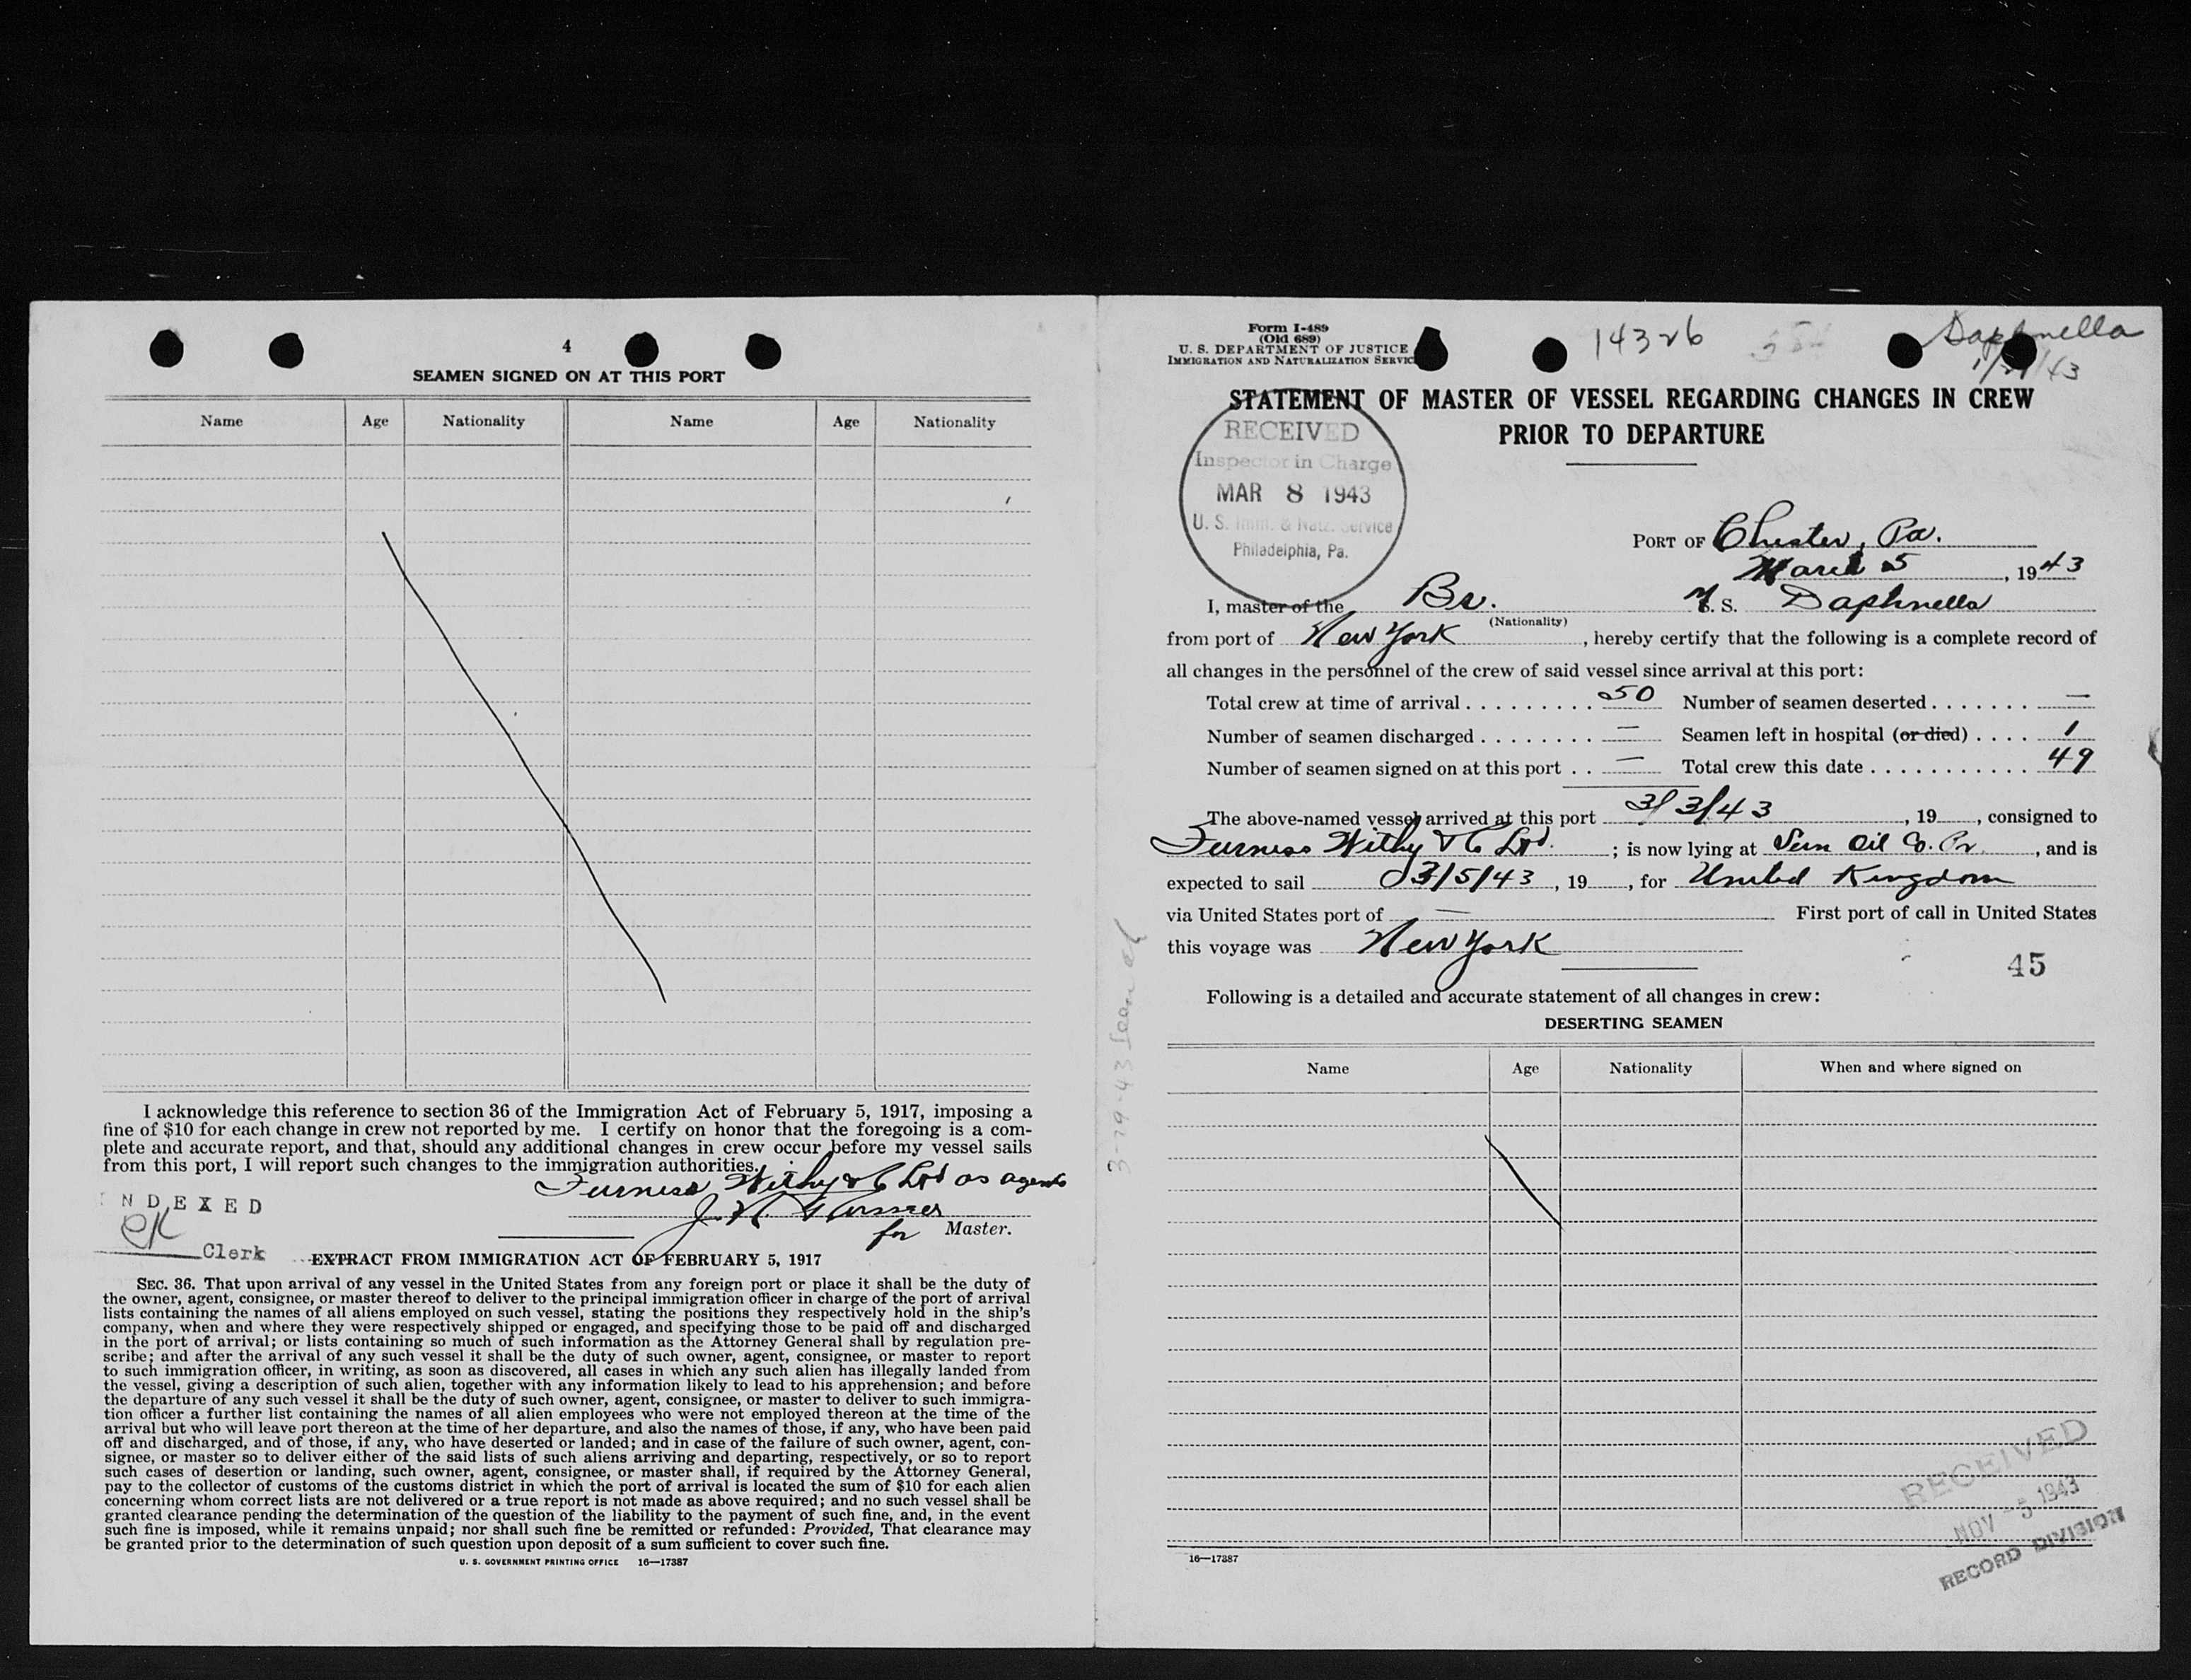 4
SEAMEN SIGNED ON AT THIS PORT
Name Age Nationality Name Age Nationality
I acknowledge this reference to section 36 of the Immigration Act of February 5, 1917, imposing a
fine of $10 for each change in crew not reported by me. I certify on honor that the foregoing is a com-
plete and accurate report, and that, should any additional changes in crew occur before my vessel sails
from this port, I will report such changes to the immigration authorities.
Furness Withy & C Ltd as agents
INDEXED
for Master.
Clerk
EXTRACT FROM IMMIGRATION ACT OF FEBRUARY 5, 1917
SEC. 36. That upon arrival of any vessel in the United States from any foreign port or place it shall be the duty of
the owner, agent, consignee, or master thereof to deliver to the principal immigration officer in charge of the port of arrival
lists containing the names of all aliens employed on such vessel, stating the positions they respectively hold in the ship's
company, when and where they were respectively shipped or engaged, and specifying those to be paid off and discharged
in the port of arrival; or lists containing so much of such information as the Attorney General shall by regulation pre-
scribe; and after the arrival of any such vessel it shall be the duty of such owner, agent, consignee, or master to report
to such immigration officer, in writing, as soon as discovered, all cases in which any such alien has illegally landed from
the vessel, giving a description of such alien, together with any information likely to lead to his apprehension; and before
the departure of any such vessel it shall be the duty of such owner, agent, consignee, or master to deliver to such immigra-
tion officer a further list containing the names of all alien employees who were not employed thereon at the time of the
arrival but who will leave port thereon at the time of her departure, and also the names of those, if any, who have been paid
off and discharged, and of those, if any, who have deserted or landed; and in case of the failure of such owner, agent, con-
signee, or master so to deliver either of the said lists of such aliens arriving and departing, respectively, or so to report
such cases of desertion or landing, such owner, agent, consignee, or master shall, if required by the Attorney General,
pay to the collector of customs of the customs district in which the port of arrival is located the sum of $10 for each alien
concerning whom correct lists are not delivered or a true report is not made as above required; and no such vessel shall be
granted clearance pending the determination of the question of the liability to the payment of such fine, and, in the event
such fine is imposed, while it remains unpaid; nor shall such fine be remitted or refunded: Provided, That clearance may
be granted prior to the determination of such question upon deposit of a sum sufficient to cover such fine.
U. S. GOVERNMENT PRINTING OFFICE 16—17387
Form I-489
(Old 689)
U. S. DEPARTMENT OF JUSTICE
IMMIGRATION AND NATURALIZATION SERVICE
14326
Daphnella
STATEMENT OF MASTER OF VESSEL REGARDING CHANGES IN CREW
PRIOR TO DEPARTURE
RECEIVED
Inspector in Charge
MAR 8 1943
U. S. Imm. & Natz. Service
Philadelphia, Pa.
PORT OF Chester, Pa.
March 5, 1943
I, master of the Br. M. S. Daphnella
(Nationality)
from port of New York, hereby certify that the following is a complete record of
all changes in the personnel of the crew of said vessel since arrival at this port:
Total crew at time of arrival . . . . . . . . . 50 Number of seamen deserted . . . . . . . —
Number of seamen discharged . . . . . . . . — Seamen left in hospital (or died) . . . . 1
Number of seamen signed on at this port . . — Total crew this date . . . . . . . . . . . 49
The above-named vessel arrived at this port 3/3/43, 19, consigned to
Furness Withy & C Ltd.; is now lying at Sun Oil Co. Pr, and is
expected to sail 3/5/43, 19, for United Kingdom
via United States port of — First port of call in United States
this voyage was New York
45
Following is a detailed and accurate statement of all changes in crew:
DESERTING SEAMEN
Name Age Nationality When and where signed on
RECEIVED
NOV -5 1943
RECORD DIVISION
16—17387
3-29-43